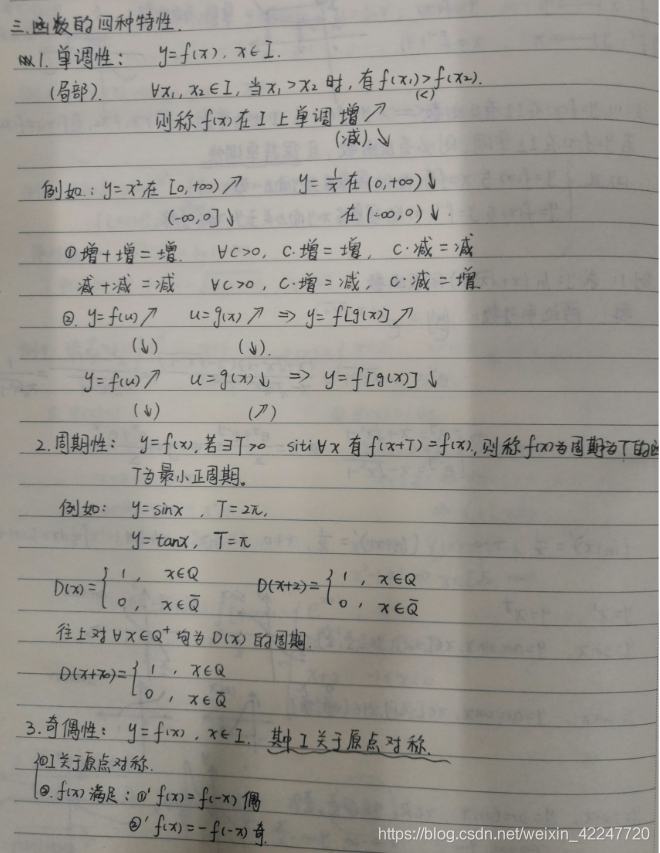 三.函数的四种特性.
1.单调性: y=f(x), x∈I.
(局部). ∀x₁,x₂∈I,当x₁>x₂时,有f(x₁)>f(x₂).
(<)
则称f(x)在I上单调增↗
(减).↘
例如: y=x²在[0,+∞)↗ y=1/x在(0,+∞)↓
(-∞,0]↓ 在(-∞,0)↓.
①增+增=增. ∀c>0, C·增=增, C·减=减
减+减=减 ∀c>0, C·增=减, C·减=增
②. y=f(u)↗ u=g(x)↗ ⇒ y=f[g(x)]↗
(↓) (↓).
y=f(u)↗ u=g(x)↓ ⇒ y=f[g(x)]↓
(↓) (↗)
2.周期性: y=f(x),若∃T>0 s.t. ∀x有f(x+T)=f(x),则称f(x)为周期为T的
T为最小正周期。
例如: y=sinx, T=2π,
y=tanx, T=π
D(x)={1, x∈Q D(x+2)={1, x∈Q
0, x∈Q̄ 0, x∈Q̄
往上对∀x∈Q⁺均为D(x)的周期.
D(x+x₀)={1, x∈Q
0, x∈Q̄
3.奇偶性: y=f(x), x∈I. 其中I关于原点对称.
①I关于原点对称.
②.f(x)满足:①'f(x)=f(-x)偶
②'f(x)=-f(-x)奇.
https://blog.csdn.net/weixin_42247720